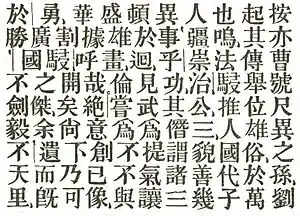 按亦曹號尺異之孫,劉
起其傳舉位雄俗,於萬
也嗚,法駸推人國代子
人疆崇治公,三貌善幾
異事乎功,其僭謂諸三
頓於迴見武爲不氣讓
盛雄畫,倫嘗爲提與
華據呼哉絕意創不像,
勇,割駸開矣尚下乃可
於廣國之余遺既
勝不劍傑而已
不毅不天里,